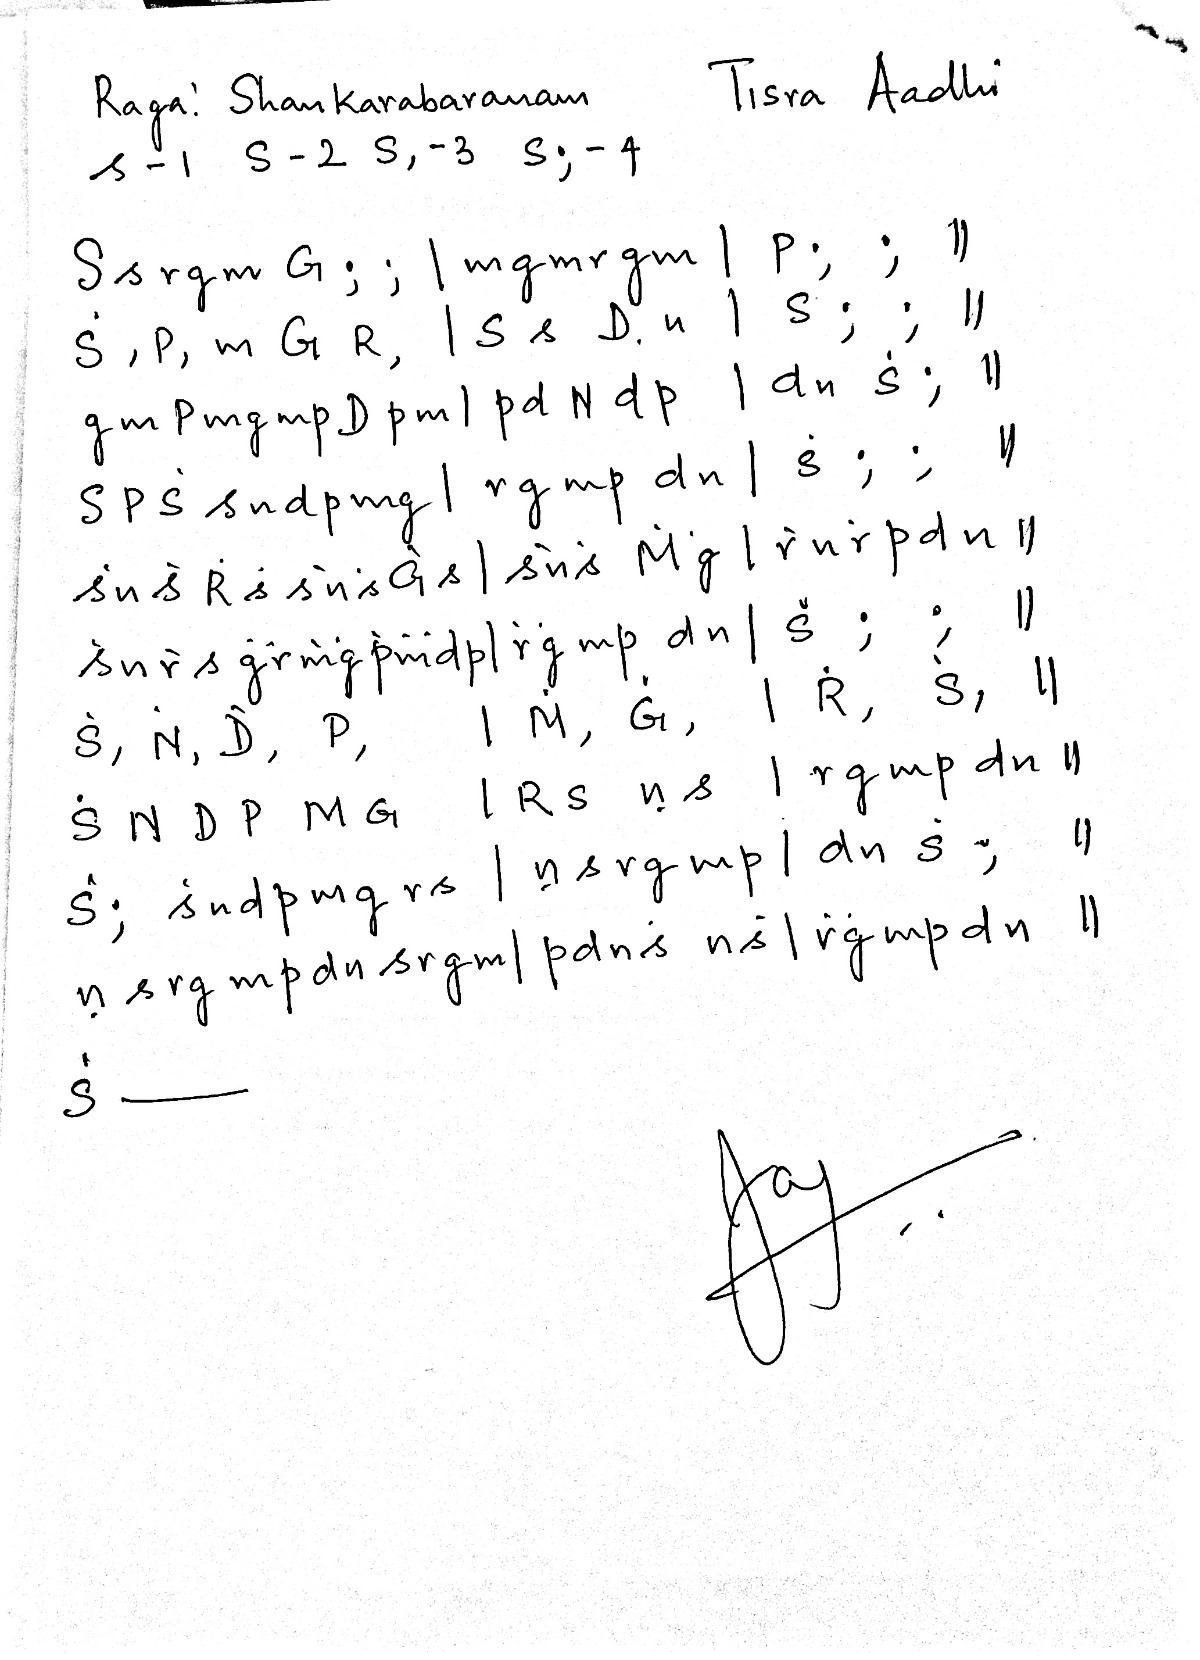 Raga: Shankarabaranam Tisra Aadhi
s-1 S-2 S,-3 S;-4
SsrgmG;; | mgmrgm | P; ; ||
Ṡ,P, m G R, | S s Ḍ. n | S ; ; ||
gmPmgmpDpm | pdNdp | dn ṡ; ||
SPṠ sndpmg | rgmp dn | ṡ ; ; ||
ṡnṡ Ṙṡ ṡnṡĠs | ṡnṡ Ṁġ | ṙnṙpdn ||
ṡnṙs ġṙṁġṗṁdp | ṙġmp dn | Ṡ ; ; ||
Ṡ, Ṅ, Ḋ, P, | Ṁ, Ġ, | Ṙ, Ṡ, ||
Ṡ N D P M G | R S ṇs | rgmpdn ||
Ṡ; ṡndpmgrs | ṇsrgmp | dn ṡ ; ||
ṇsrgmpdnsrgm | pdnṡ nṡ | ṙġmpdn ||
Ṡ —